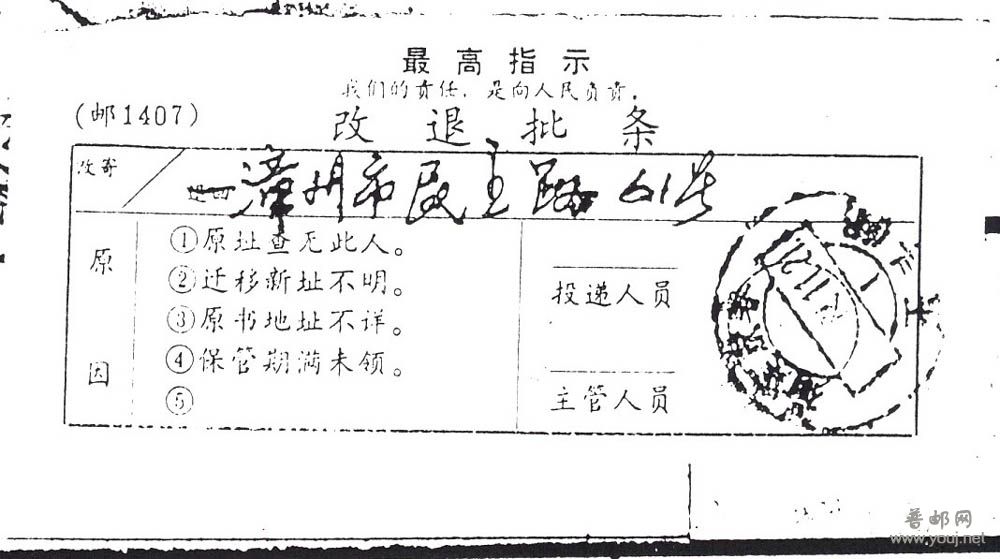 最高指示
我们的责任，是向人民负责。
(邮1407)
改退批条
改寄
漳州市民主路 61号
原因
①原址查无此人。
②迁移新址不明。
③原书地址不详。
④保管期满未领。
⑤
投递人员
主管人员
普邮网
www.youj.net